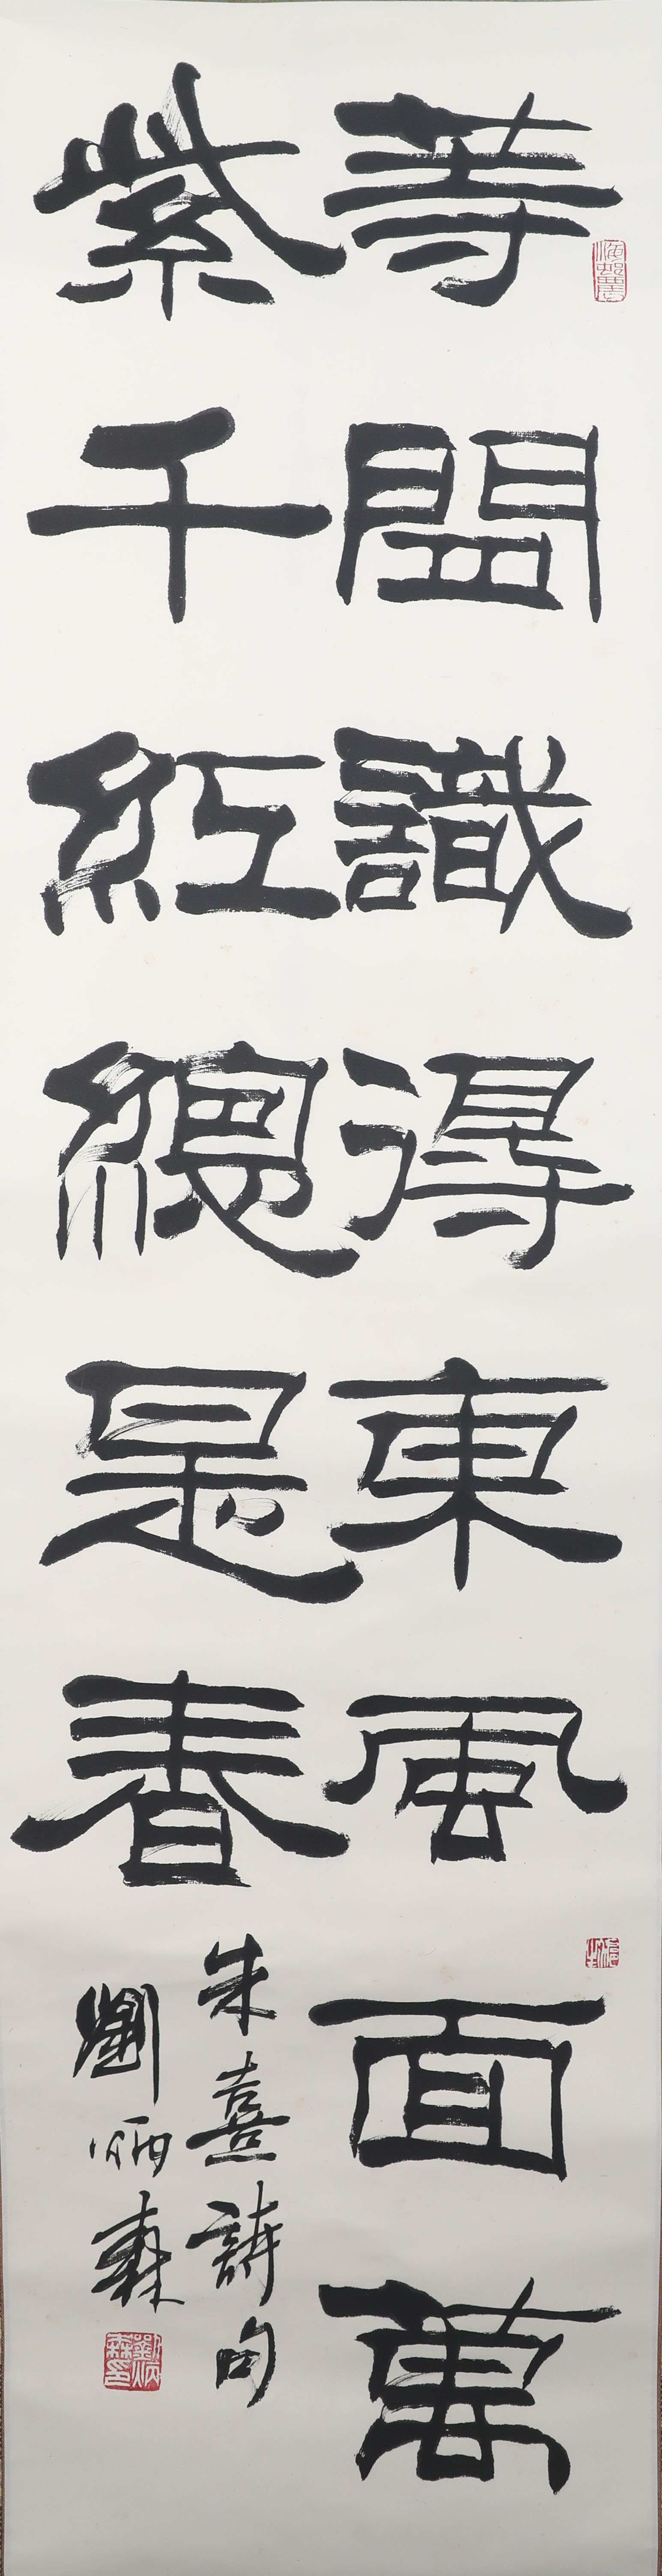 等閒識得東風面萬
紫千紅總是春
朱熹詩句
劉炳森
劉炳森印